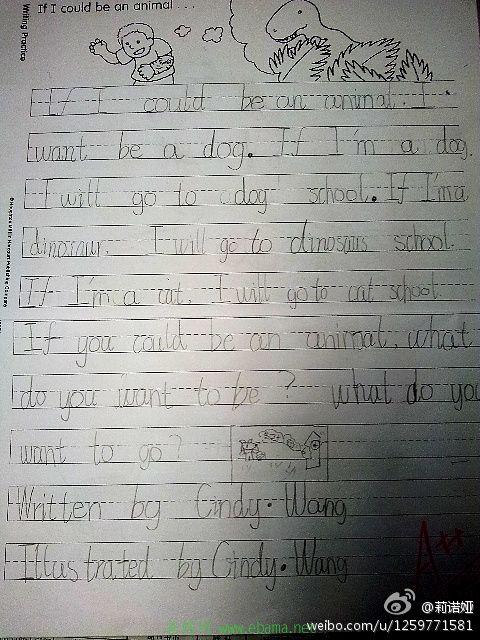 Writing Practice
If I could be an animal . . .
If I could be an animal. I
want be a dog. If I'm a dog.
I will go to dog school. If I'm a
dinosaur. I will go to dinosaurs school.
If I'm a cat. I will go to cat school.
If you could be an animal, what
do you want to be ? what do you
want to go?
Written by Cindy·Wang
Illustrated by Cindy·Wang
A++
@莉诺娅
www.ebama.net
weibo.com/u/1259771581